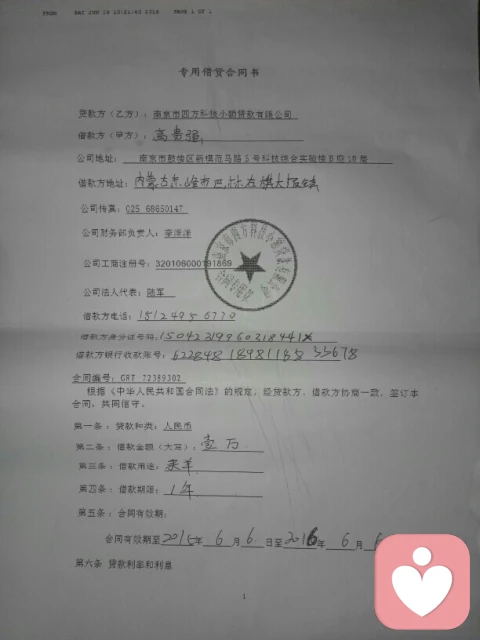 FROM SAT JUN 2015 PAGE 1 OF 1
专用借贷合同书
贷款方（乙方）：南京市四方科技小额贷款有限公司
借款方（甲方）：高贵强
公司地址： 南京市鼓楼区新模范马路5号科技综合实验楼B栋18层
借款方地址：内蒙古赤峰市巴林左旗大板镇
公司传真：025 68650147
公司财务部负责人：李洋洋
公司工商注册号：320106000191869
公司法人代表：陆军
借款方电话：15124956770
借款方身份证号码：15042319960318441X
借款方银行收款账号：622848 1898113533678
合同编号：GRT 72389302
根据《中华人民共和国合同法》的规定，经贷款方、借款方协商一致，签订本
合同，共同信守。
第一条：贷款种类：人民币
第二条：借款金额（大写）：壹万
第三条：借款用途：买羊
第四条：借款期限：1年
第五条：合同有效期：
合同有效期至2015年6月6日至2016年6月6
第六条 贷款利率和利息
1